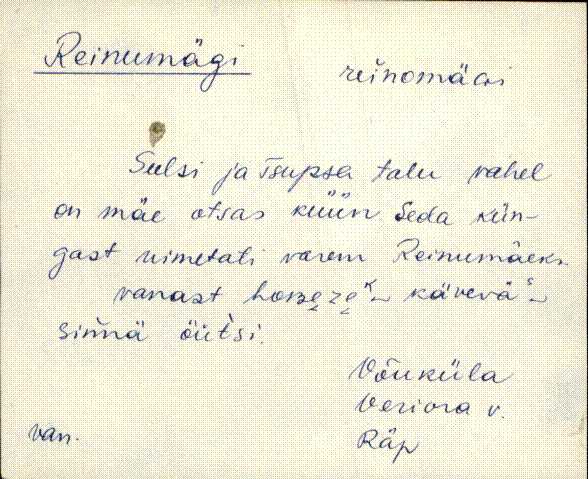 Reinumägi reino̯mäGi
Sulsi ja Tsupsa talu vahel
on mäe otsas küün. Seda kün-
gast nimetati varem Reinumäeks.
vanast hobeze käveväˢ
sinnä öütsi.
Võuküla
Veriora v.
van. Räp